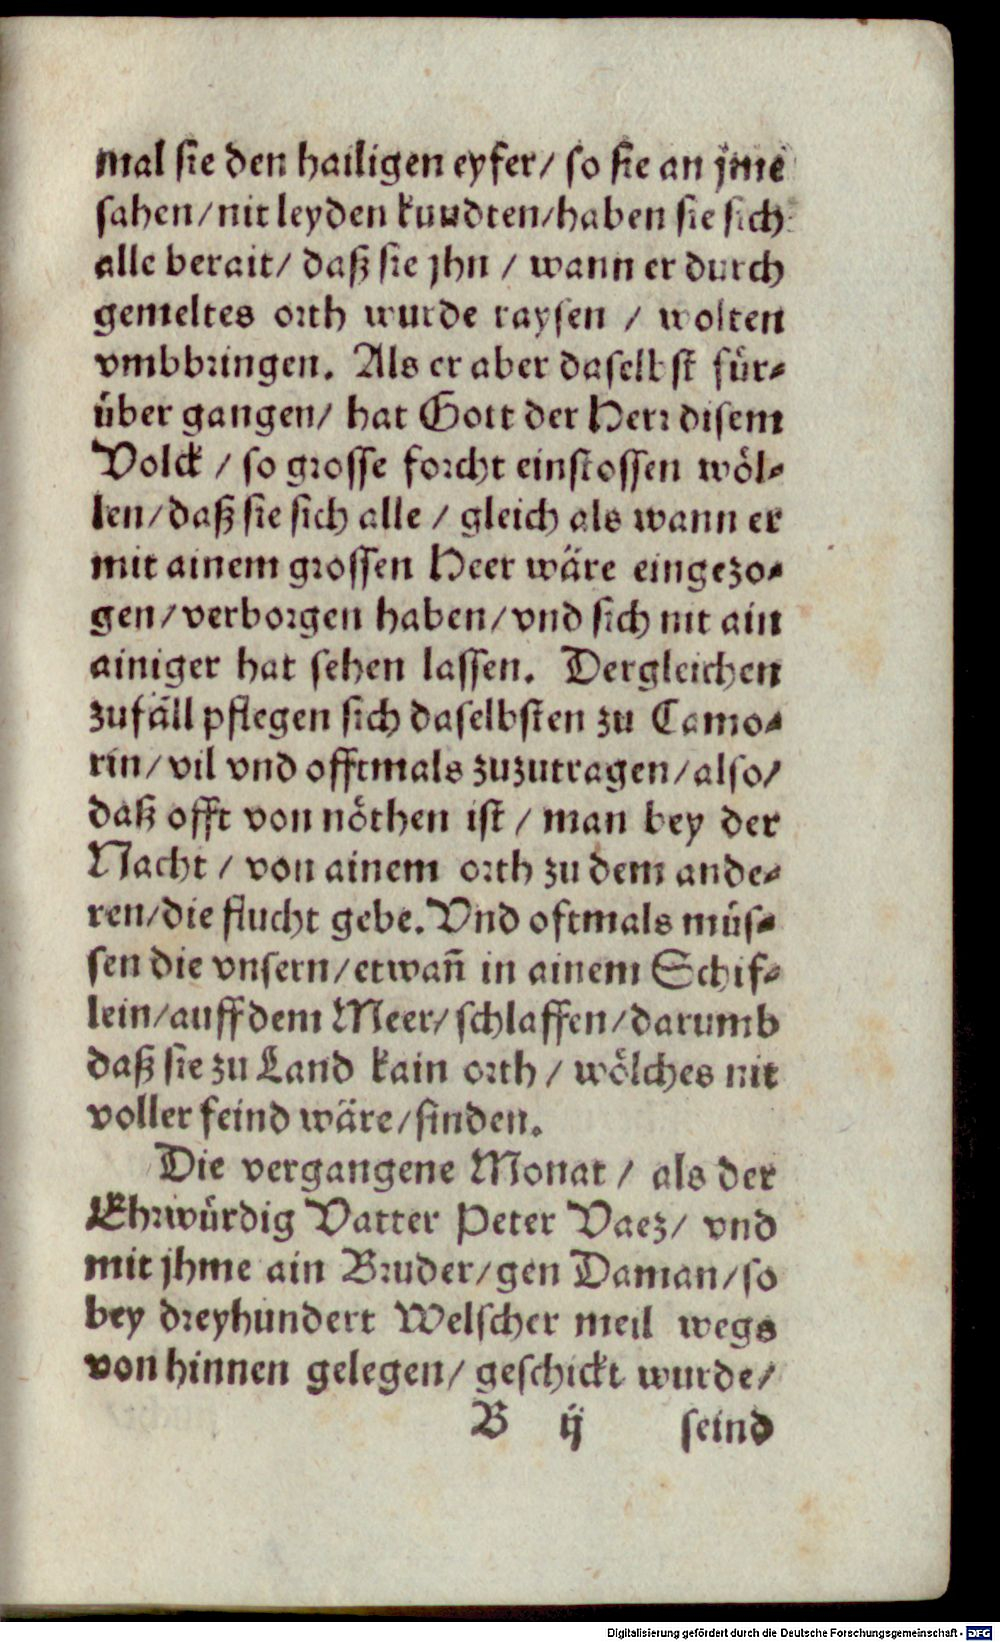 mal sie den hailigen eyfer/ so sie an jme
sahen/nit leyden kuudten/haben sie sich
alle berait/ daß sie jhn / wann er durch
gemeltes orth wurde raysen / wolten
vmbbringen. Als er aber daselbst für-
über gangen/ hat Gott der Herr disem
Volck / so grosse forcht einstossen wöl-
len/daß sie sich alle / gleich als wann er
mit ainem grossen Heer wäre eingezo-
gen/verborgen haben/vnd sich nit ain
ainiger hat sehen lassen. Dergleichen
zufäll pflegen sich daselbsten zu Camo-
rin/vil vnd offtmals zuzutragen/also/
daß offt von nöthen ist / man bey der
Nacht / von ainem orth zu dem ande-
ren/die flucht gebe. Vnd oftmals müs-
sen die vnsern/etwañ in ainem Schif-
lein/auff dem Meer/ schlaffen/darumb
daß sie zu Land kain orth / wölches nit
voller feind wäre/finden.
Die vergangene Monat / als der
Ehrwürdig Vatter Peter Vaez/ vnd
mit jhme ain Bruder/gen Daman/so
bey dreyhundert Welscher meil wegs
von hinnen gelegen/ geschickt wurde/
B ij seind
Digitalisierung gefördert durch die Deutsche Forschungsgemeinschaft - DFG